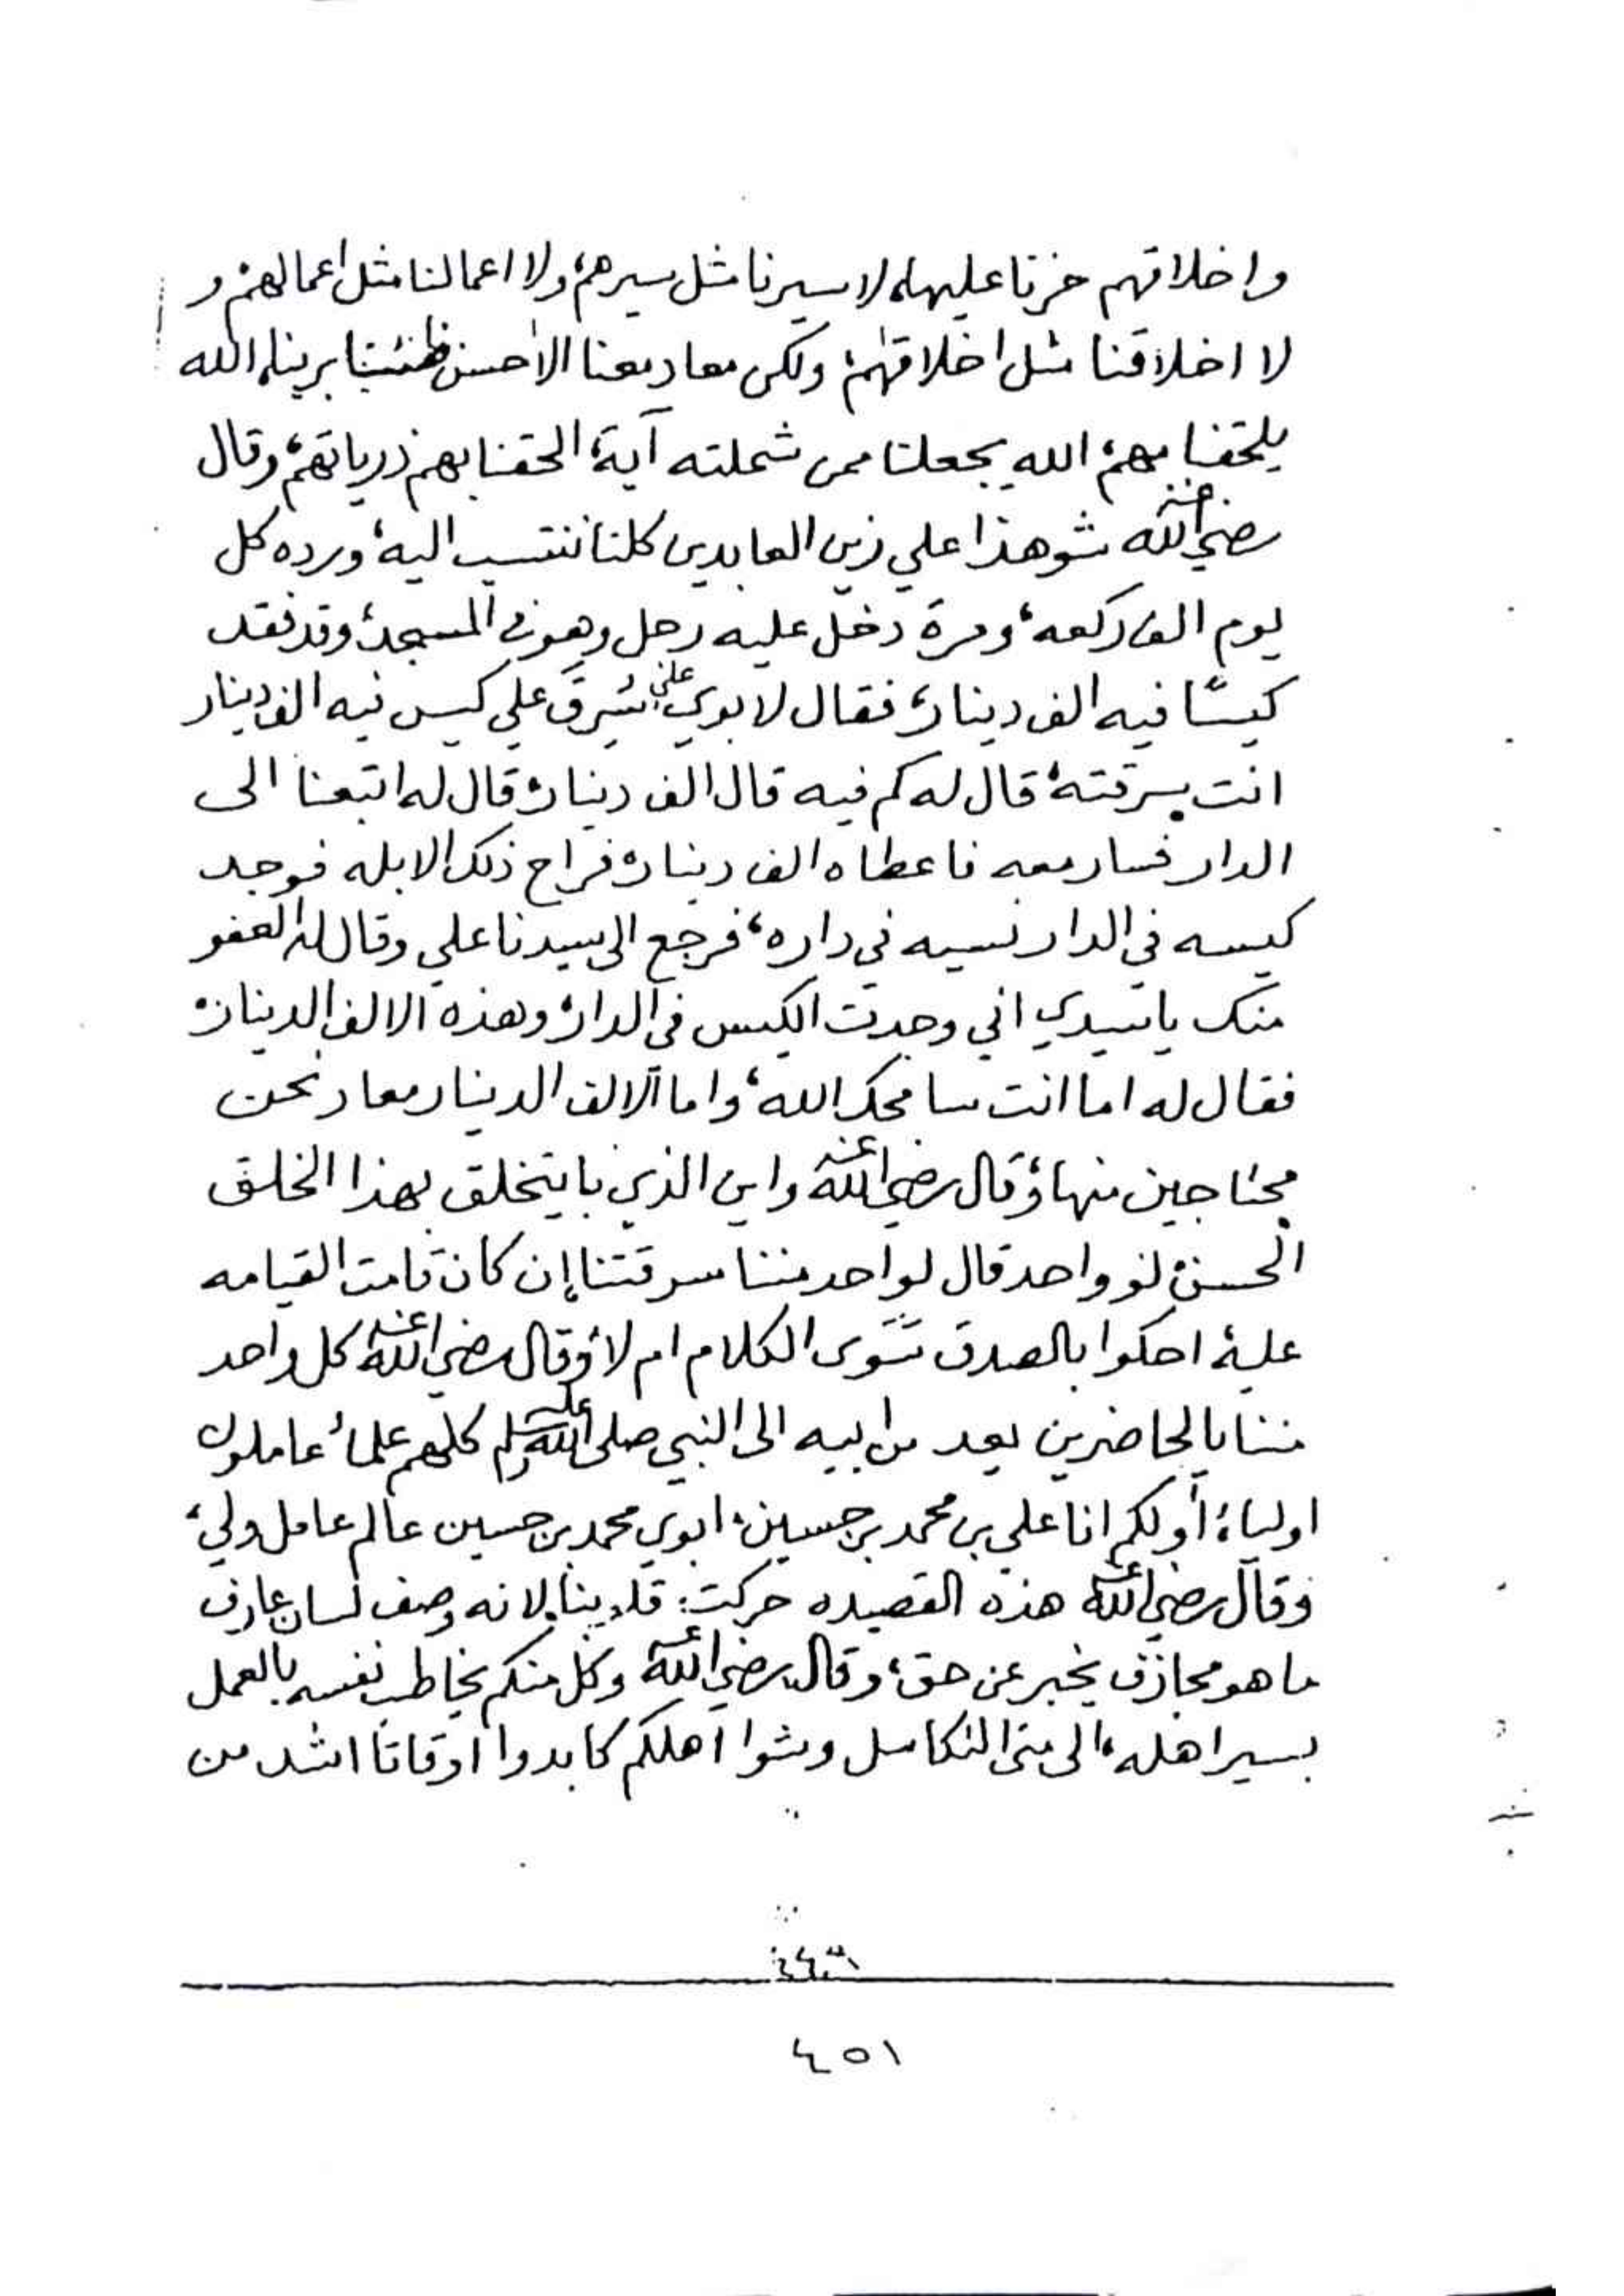 واخلاقهم حزنا عليها، لا سيرنا مثل سيرهم، ولا اعمالنا مثل اعمالهم، و
لا اخلاقنا مثل اخلاقهم، ولكن معاد معنا الا حسن ظننا بربنا، الله
يلحقنا بهم، الله يجعلنا ممن شملته آية، الحقنا بهم ذرياتهم، وقال
رضي الله عنه شو هذا علي زين العابدين كلنا ننتسب اليه، ورده كل
يوم الف ركعه، ومرة دخل عليه رجل وهو في المسجد، وقد فقد
كيسًا فيه الف دينار، فقال لابوي علي سُرِقَ علي كيس فيه الف دينار
انت سرقته، قال له كم فيه قال الف دينار، قال له اتبعنا الى
الدار فسار معه فاعطاه الف دينار، فراح ذلك الابله فوجد
كيسه في الدار نسيه في داره، فرجع الى سيدنا علي وقال له العفو
منك يا سيدي اني وجدت الكيس في الدار، وهذه الالف الدينار،
فقال له اما انت سامحك الله، واما الالف الدينار معاد نحن
محتاجين منها، وقال رضي الله عنه واين الذي بايتخلق بهذا الخلق
الحسن، لو واحد قال لواحد مننا سرقتنا إن كان قامت القيامه
عليه، احكوا بالصدق تسَوى الكلام ام لا، وقال رضي الله عنه كل واحد
مننا يالحاضرين يعد من ابيه الى النبي صلى الله عليه وسلم كلهم علماء عاملون
اولياء، أولكم انا علي بن محمد بن حسين، ابوي محمد بن حسين عالم عامل ولي،
وقال رضي الله عنه هذه القصيده حركت قلوبنا، لانه وصف لسان عارف
ما هو مجازف يخبر عن حق، وقال رضي الله عنه وكل منكم يخاطب نفسه بالعمل
بسير اهله، الى متى التكاسل وشوا اهلكم كابدوا اوقاتًا اشد من
٤٥١